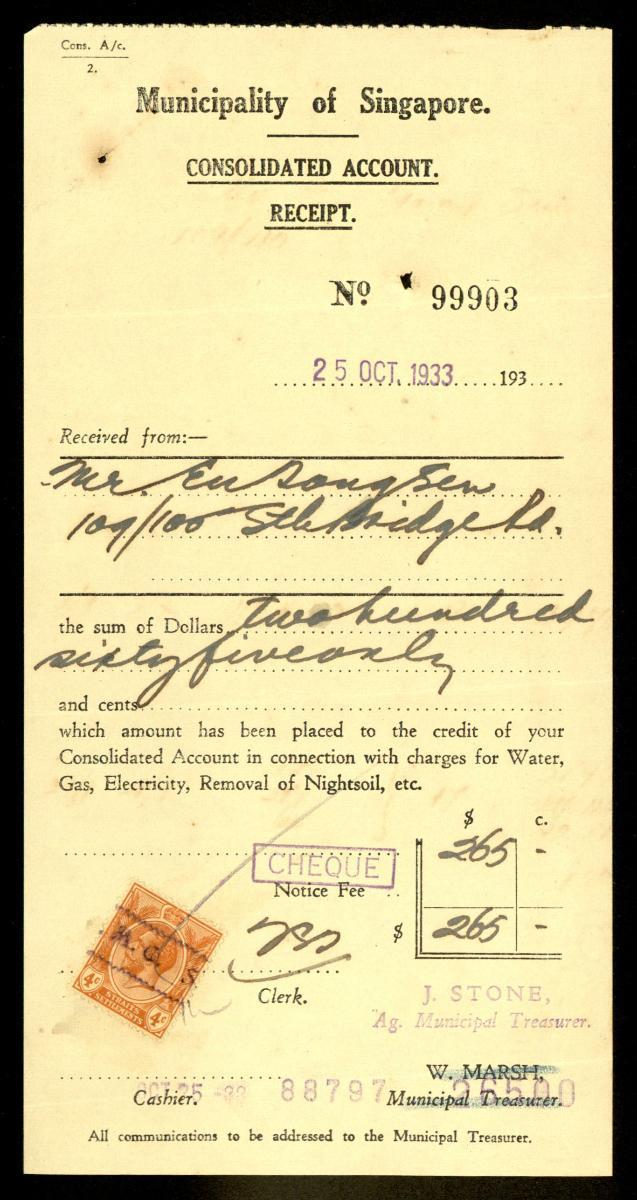 Cons. A/c.
2.
Municipality of Singapore.
CONSOLIDATED ACCOUNT.
RECEIPT.
No. 99903
25 OCT. 1933 193
Received from:—
Mr. Eu Tong Sen
109/100 Sth Bridge Rd.
the sum of Dollars two hundred
sixty five only
and cents
which amount has been placed to the credit of your
Consolidated Account in connection with charges for Water,
Gas, Electricity, Removal of Nightsoil, etc.
$ c.
265 -
CHEQUE
Notice Fee
$ 265 -
4c STRAITS SETTLEMENTS 4c
Clerk.
J. STONE,
Ag. Municipal Treasurer.
W. MARSH,
OCT 25 -33 88797 26500
Cashier. Municipal Treasurer.
All communications to be addressed to the Municipal Treasurer.